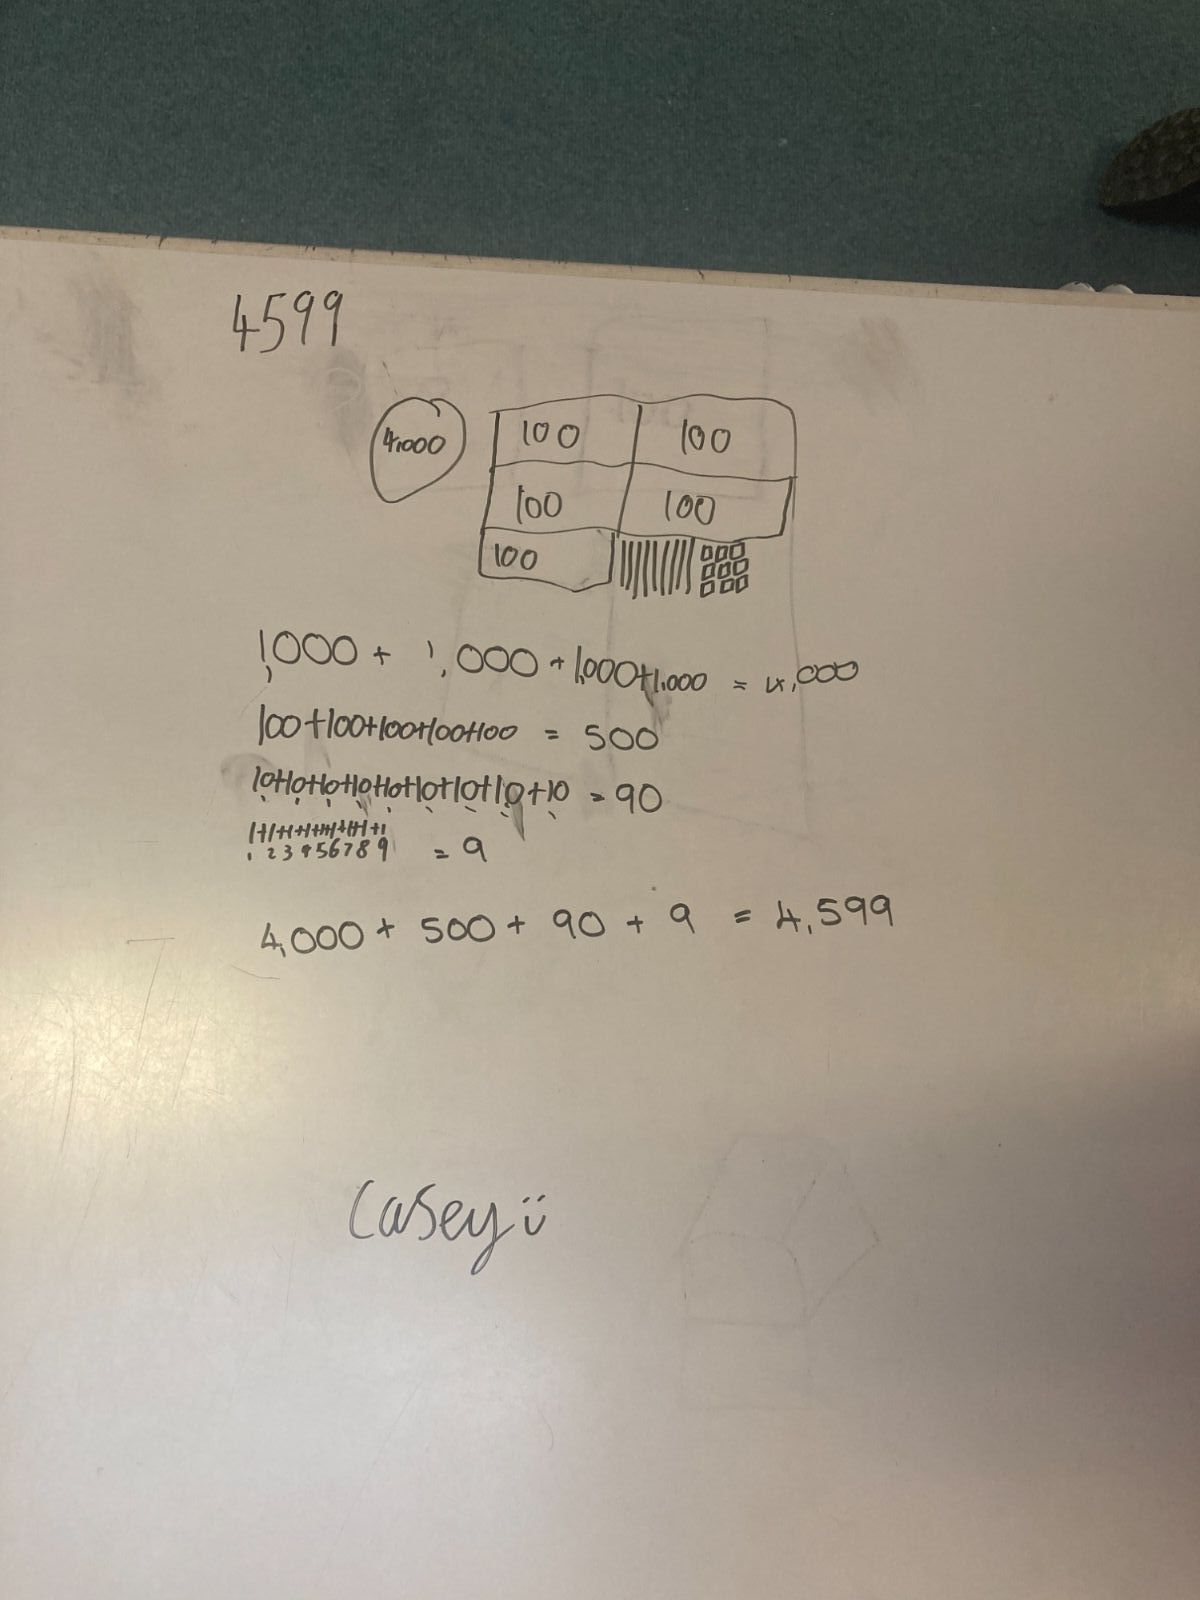 4599
4,000
100 100
100 100
100
1,000 + 1,000 + 1,000 + 1,000 = 4,000
100+100+100+100+100 = 500
10+10+10+10+10+10+10+10+10 = 90
1+1+1+1+1+1+1+1+1
1 2 3 4 5 6 7 8 9 = 9
4,000 + 500 + 90 + 9 = 4,599
Casey ü